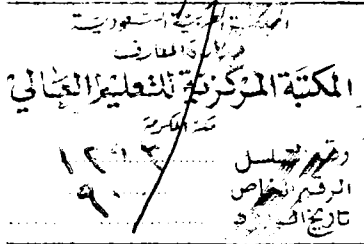 المملكة العربية السعودية
وزارة المعارف
المكتبة المركزية للتعليم العالي
مكة المكرمة
رقم التسلسل
الرقم الخاص
تاريخ